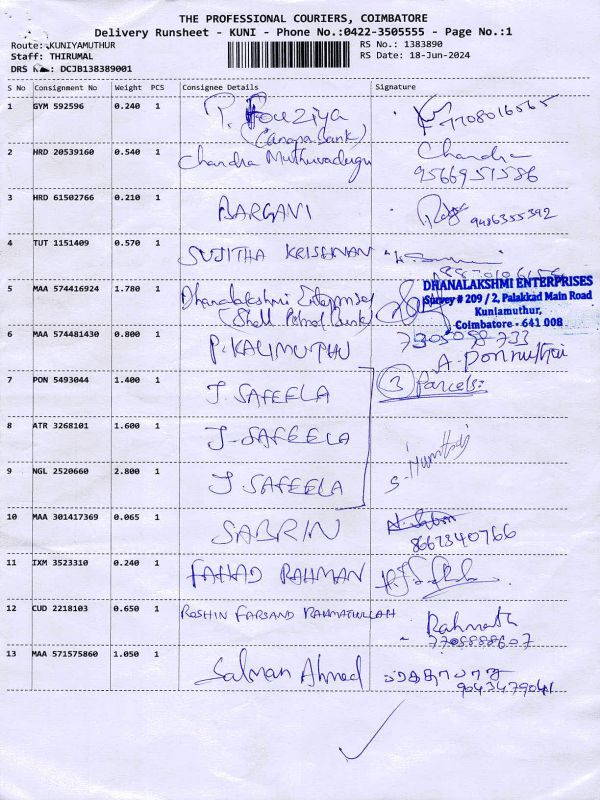 THE PROFESSIONAL COURIERS, COIMBATORE
Delivery Runsheet - KUNI - Phone No.:0422-3505555 - Page No.:1
Route: KUNIYAMUTHUR
RS No.: 1383890
Staff: THIRUMAL
RS Date: 18-Jun-2024
DRS No.: DCJB138389001
S No Consignment No Weight PCS Consignee Details Signature
1 GYM 592596 0.240 1 P. Fouziya 7708016565
(Canara Bank)
2 HRD 20539160 0.540 1 Chandra Chandra
9566951586
3 HRD 61502766 0.210 1 BARGANI 9486355392
4 TUT 1151409 0.570 1 SUJITHA KRISHNAN
5 MAA 574416924 1.780 1 Dhanalakshmi Enterprises
(Shell Petrol Bunk)
DHANALAKSHMI ENTERPRISES
Survey # 209 / 2, Palakkad Main Road
Kuniamuthur,
Coimbatore - 641 008
7305098733
6 MAA 574481430 0.800 1 P. KALIMUTHU A. Ponnuthai
7 PON 5493044 1.400 1 J. SAFEELA (3) Parcels:
8 ATR 3268101 1.600 1 J. SAFEELA
9 NGL 2520660 2.800 1 J. SAFEELA
10 MAA 301417369 0.065 1 SABRIN
8667340766
11 IXM 3523310 0.240 1 FAHAD RAHMAN
12 CUD 2218103 0.650 1 ROSHIN FARSAND RAHMATULLAH Rahmath
7708888607
13 MAA 571575860 1.050 1 Salman Ahmed
9043479041